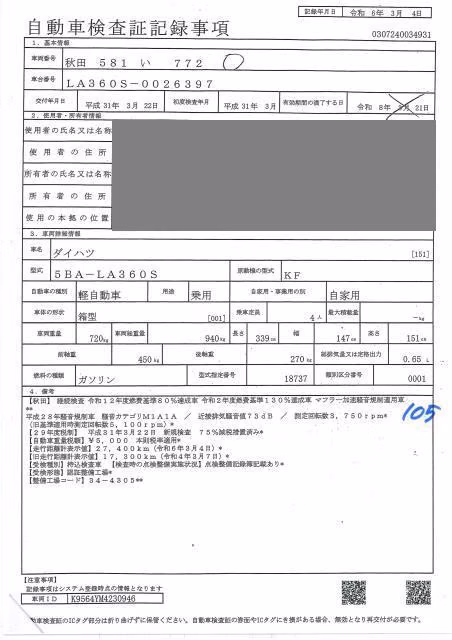 記録年月日 令和 6年 3月 4日
自動車検査証記録事項
0307240034931
1. 基本情報
車両番号 秋田 581 い 772
車台番号 LA360S-0026397
交付年月日 平成 31年 3月 22日 初度検査年月 平成 31年 3月 有効期間の満了する日 令和 8年 3月 21日
2. 使用者・所有者情報
使用者の氏名又は名称
使用者の住所
所有者の氏名又は名称
所有者の住所
使用の本拠の位置
3. 車両詳細情報
車名 ダイハツ [151]
型式 5BA-LA360S 原動機の型式 KF
自動車の種別 軽自動車 用途 乗用 自家用・事業用の別 自家用
車体の形状 箱型 [001] 乗車定員 4人 最大積載量 -kg
車両重量 720kg 車両総重量 940kg 長さ 339cm 幅 147cm 高さ 151cm
前軸重 450kg 後軸重 270kg 総排気量又は定格出力 0.65 L
燃料の種類 ガソリン 型式指定番号 18737 類別区分番号 0001
4. 備考
【秋田】 継続検査 令和12年度燃費基準80%達成車 令和2年度燃費基準130%達成車 マフラー加速騒音規制適用車
**
平成28年騒音規制車 騒音カテゴリM1A1A / 近接排気騒音値73dB / 測定回転数3,750rpm*
(旧基準適用時測定回転数5,100rpm)*
【29年度税制】 平成31年3月22日 新規検査 75%減税措置済み*
【自動車重量税額】¥5,000 本則税率適用*
【走行距離計表示値】27,400km(令和6年3月4日)*
【旧走行距離計表示値】17,300km(令和4年3月7日)*
【受検種別】持込検査車 【検査時の点検整備実施状況】点検整備記録簿記載あり*
【受検形態】認証整備工場*
【整備工場コード】34-4305**
105
【注意事項】
記録事項はシステム登録時点の情報となります
車両ID K9564YM4230946
動車検査証のICタグ部分は折り曲げずに保管ください。自動車検査証の券面やICタグにき損がある場合、無効となり再交付が必要です。